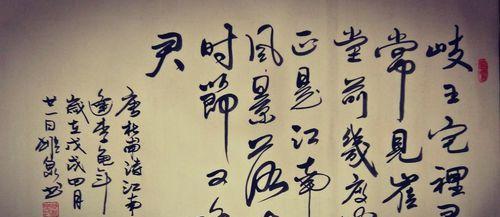 岐王宅裡
常見崔
堂前幾度
正是江南
風景落
时節又
君
唐杜甫詩江南
逢李龜年
歲在戊戌四月
廿一日